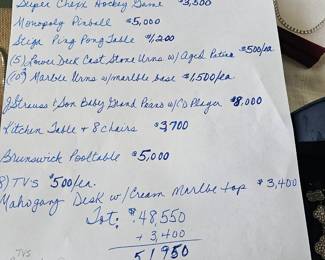 Super Chexx Hockey Game $3,500
Monopoly Pinball $5,000
Stiga Ping Pong Table $1,200
(5) Lower Deck Cast Stone Urns w/ Aged Patina $500/ea
(10) Marble Urns w/marble base $1,500/ea.
J Strauss & Son Baby Grand Piano w/CD Player $8,000
Kitchen Table + 8 chairs $3,700
Brunswick Pooltable $5,000
8) TVS $500/ea.
Mahogany Desk w/Cream Marlbe top $3,400
Tot: $48,550
+ 3,400
51,950
TVS